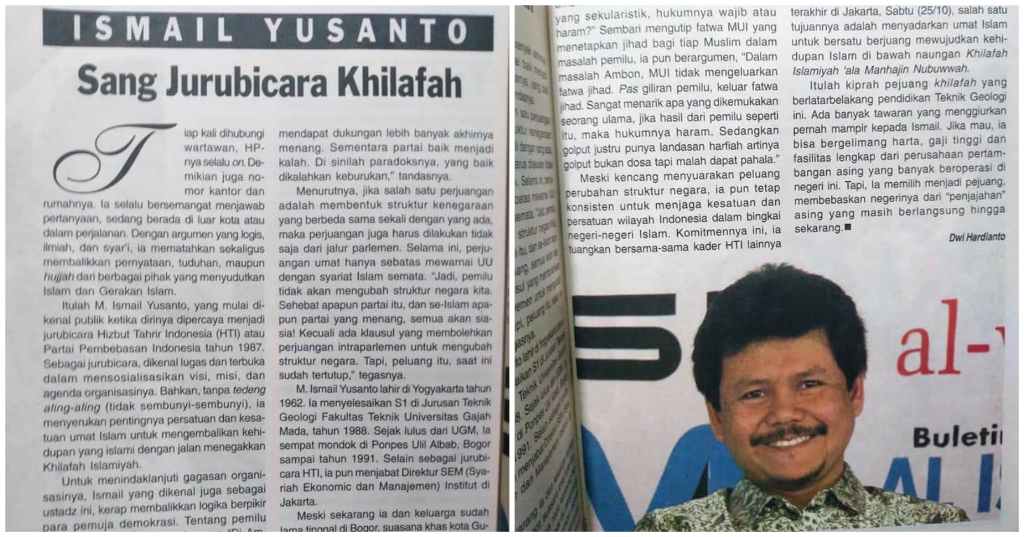 ISMAIL YUSANTO
Sang Jurubicara Khilafah
Tiap kali dihubungi
wartawan, HP-
nya selalu on. De-
mikian juga no-
mor kantor dan
rumahnya. Ia selalu bersemangat menjawab
pertanyaan, sedang berada di luar kota atau
dalam perjalanan. Dengan argumen yang logis,
ilmiah, dan syar'i, ia mematahkan sekaligus
membalikkan pernyataan, tuduhan, maupun
hujjah dari berbagai pihak yang menyudutkan
Islam dan Gerakan Islam.
Itulah M. Ismail Yusanto, yang mulai di-
kenal publik ketika dirinya dipercaya menjadi
jurubicara Hizbut Tahrir Indonesia (HTI) atau
Partai Pembebasan Indonesia tahun 1987.
Sebagai jurubicara, dikenal lugas dan terbuka
dalam mensosialisasikan visi, misi, dan
agenda organisasinya. Bahkan, tanpa tedeng
aling-aling (tidak sembunyi-sembunyi), ia
menyerukan pentingnya persatuan dan kesa-
tuan umat Islam untuk mengembalikan kehi-
dupan yang islami dengan jalan menegakkan
Khilafah Islamiyah.
Untuk menindaklanjuti gagasan organi-
sasinya, Ismail yang dikenal juga sebagai
ustadz ini, kerap membalikkan logika berpikir
para pemuja demokrasi. Tentang pemilu
mendapat dukungan lebih banyak akhirnya
menang. Sementara partai baik menjadi
kalah. Di sinilah paradoksnya, yang baik
dikalahkan keburukan," tandasnya.
Menurutnya, jika salah satu perjuangan
adalah membentuk struktur kenegaraan
yang berbeda sama sekali dengan yang ada,
maka perjuangan juga harus dilakukan tidak
saja dari jalur parlemen. Selama ini, perju-
angan umat hanya sebatas mewarnai UU
dengan syariat Islam semata. "Jadi, pemilu
tidak akan mengubah struktur negara kita.
Sehebat apapun partai itu, dan se-Islam apa-
pun partai yang menang, semua akan sia-
sia! Kecuali ada klausul yang membolehkan
perjuangan intraparlemen untuk mengubah
struktur negara. Tapi, peluang itu, saat ini
sudah tertutup," tegasnya.
M. Ismail Yusanto lahir di Yogyakarta tahun
1962. Ia menyelesaikan S1 di Jurusan Teknik
Geologi Fakultas Teknik Universitas Gajah
Mada, tahun 1988. Sejak lulus dari UGM, Ia
sempat mondok di Ponpes Ulil Albab, Bogor
sampai tahun 1991. Selain sebagai jurubi-
cara HTI, ia pun menjabat Direktur SEM (Sya-
riah Ekonomic dan Manajemen) Institut di
Jakarta.
Meski sekarang ia dan keluarga sudah
lama tinggal di Bogor, suasana khas kota Gu-
yang sekularistik, hukumnya wajib atau
haram?" Sembari mengutip fatwa MUI yang
menetapkan jihad bagi tiap Muslim dalam
masalah pemilu, ia pun berargumen, "Dalam
masalah Ambon, MUI tidak mengeluarkan
fatwa jihad. Pas giliran pemilu, keluar fatwa
jihad. Sangat menarik apa yang dikemukakan
seorang ulama, jika hasil dari pemilu seperti
itu, maka hukumnya haram. Sedangkan
golput justru punya landasan harfiah artinya
golput bukan dosa tapi malah dapat pahala."
Meski kencang menyuarakan peluang
perubahan struktur negara, ia pun tetap
konsisten untuk menjaga kesatuan dan
persatuan wilayah Indonesia dalam bingkai
negeri-negeri Islam. Komitmennya ini, ia
tuangkan bersama-sama kader HTI lainnya
terakhir di Jakarta, Sabtu (25/10), salah satu
tujuannya adalah menyadarkan umat Islam
untuk bersatu berjuang mewujudkan kehi-
dupan Islam di bawah naungan Khilafah
Islamiyah 'ala Manhajin Nubuwwah.
Itulah kiprah pejuang khilafah yang
berlatarbelakang pendidikan Teknik Geologi
ini. Ada banyak tawaran yang menggiurkan
pernah mampir kepada Ismail. Jika mau, ia
bisa bergelimang harta, gaji tinggi dan
fasilitas lengkap dari perusahaan pertam-
bangan asing yang banyak beroperasi di
negeri ini. Tapi, Ia memilih menjadi pejuang,
membebaskan negerinya dari "penjajahan"
asing yang masih berlangsung hingga
sekarang.■
Dwi Hardianto
al-
Buletin